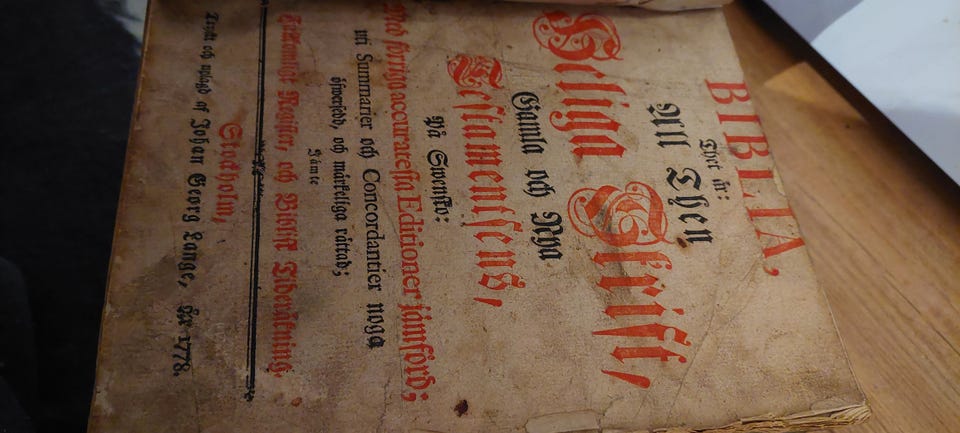 BIBLIA,
Thet är:
All Then
Heliga Skrift,
Gamla och Nya
Testamentsens,
På Swensko:
Med förriga accurateſta Editioner jämförd;
uti Summarier och Concordantier noga
öfwersedd, och märkeliga rättad;
Jämte
Fullkomligt Register, och Biblisk Tideräkning.
Stockholm,
Tryckt och uplagd af Johan Georg Lange, År 1778.